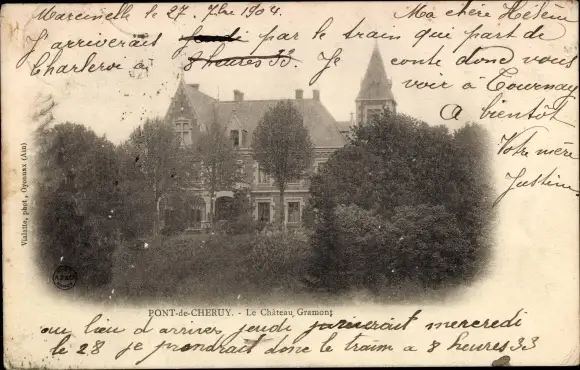 Marcinelle le 27. 7bre 1904
Ma chère Helène
J'arriverais jeudi par le train qui part de
Charleroi à 8 heures 33. Je conte donc vous
voir à Tournay
A bientôt
Votre mère
Justine
Vialatte, phot., Oyonnax (Ain)
PONT-de-CHERUY. - Le Château Gramont
au lieu d'arriver jeudi j'arriverait mercredi
le 28 je prendrait donc le train a 8 heures 33